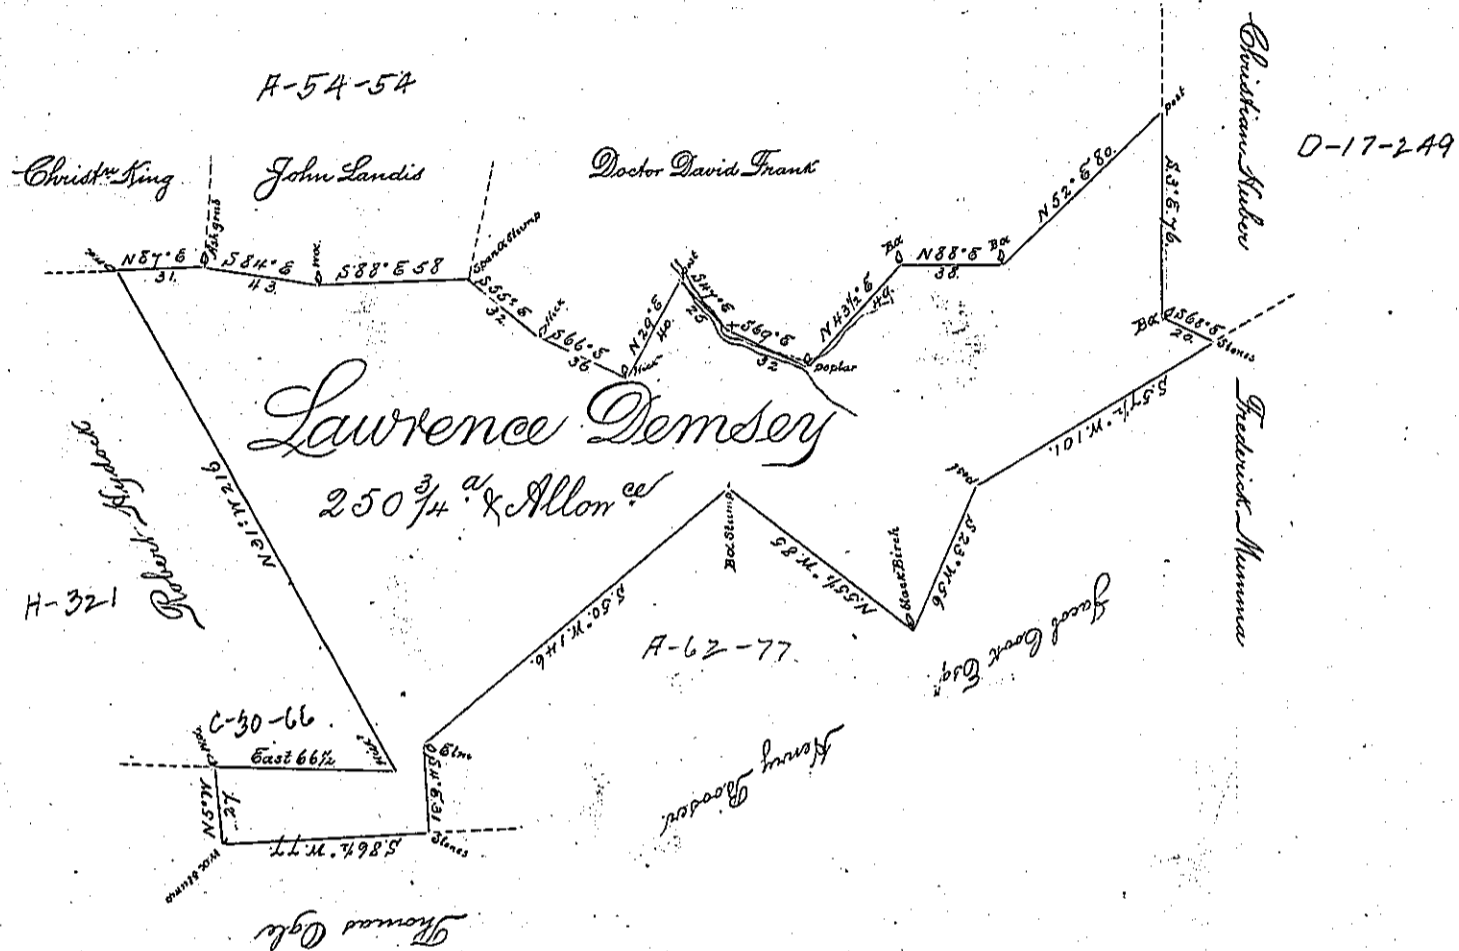 A-54-54
Christn King
John Landis
Doctor David Frank
Christian Huber
D-17-249
N 87° E
31.
Ash grub
S 84° E
43.
W.oa.
S 88° E 58
Span oa Stump
S 55° E
32.
Hick
S 66° E
36
Hick
N 29° E
40.
Post
S 47° E
25
S 69° E
32
poplar
N 43 1/2 E
49.
B.a
N 88° E
38.
B.a
N 52° E 80.
post
S. 3° E. 76.
B.a
S 68° E
20.
Stones
S. 57 1/2° W. 101.
post
S. 23° W 56
Black Birch
N. 55 1/2° W. 85
B.oa Stump
S. 50.° W. 146.
Elm
S 4° E. 31
Stones
S. 86 1/2° W. 77.
W.oa Stump
N 5° W.
27
East 66 1/2
Hick
N 31° W 216
Lawrence Demsey
250 3/4 a & Allowce
H-321
Robert
C-30-66.
A-62-77.
Frederick Mumma
Jacob Cook Esqr
Henry
Thomas Ogle